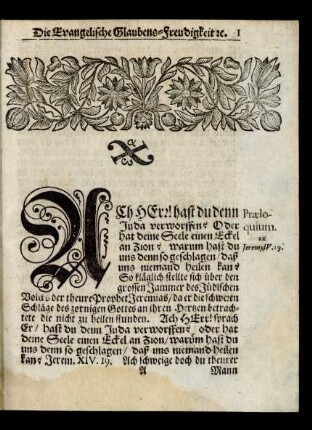 Die Evangelische Glaubens-Freudigkeit ꝛc. 1
ACh HErr! hast du denn
Juda verworffen? Oder
hat deine Seele einen Eckel
an Zion? warum hast du
uns denn so geschlagen/ daß
uns niemand heilen kan?
So kläglich stellte sich über den
grossen Jammer des Jüdischen
Volcks der theure Prophet Jeremias/ da er die schweren
Schläge des zornigen Gottes an ihren Hertzen betrach-
tete die nicht zu heilen stunden. Ach HErr! sprach
Er/ hast du denn Juda verworffen? oder hat
deine Seele einen Eckel an Zion/ warum hast du
uns denn so geschlagen/ daß uns niemand heilen
kan? Jerem. XIV. 19. Ach schweige doch du theurer
A Mann
Prælo-
quium.
ex
Jerem. IV. 19.